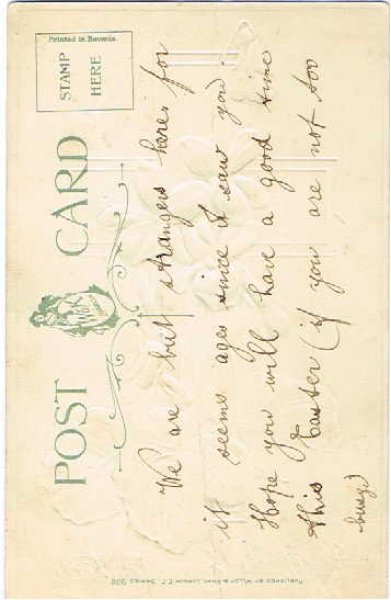 POST CARD
Printed in Bavaria.
STAMP
HERE
We are but strangers here, for
it seems ages since I saw you
Hope you will have a good time
this Easter (if you are not too
busy)
PUBLISHED BY WILDT & KRAY, LONDON E.C. SERIES 930